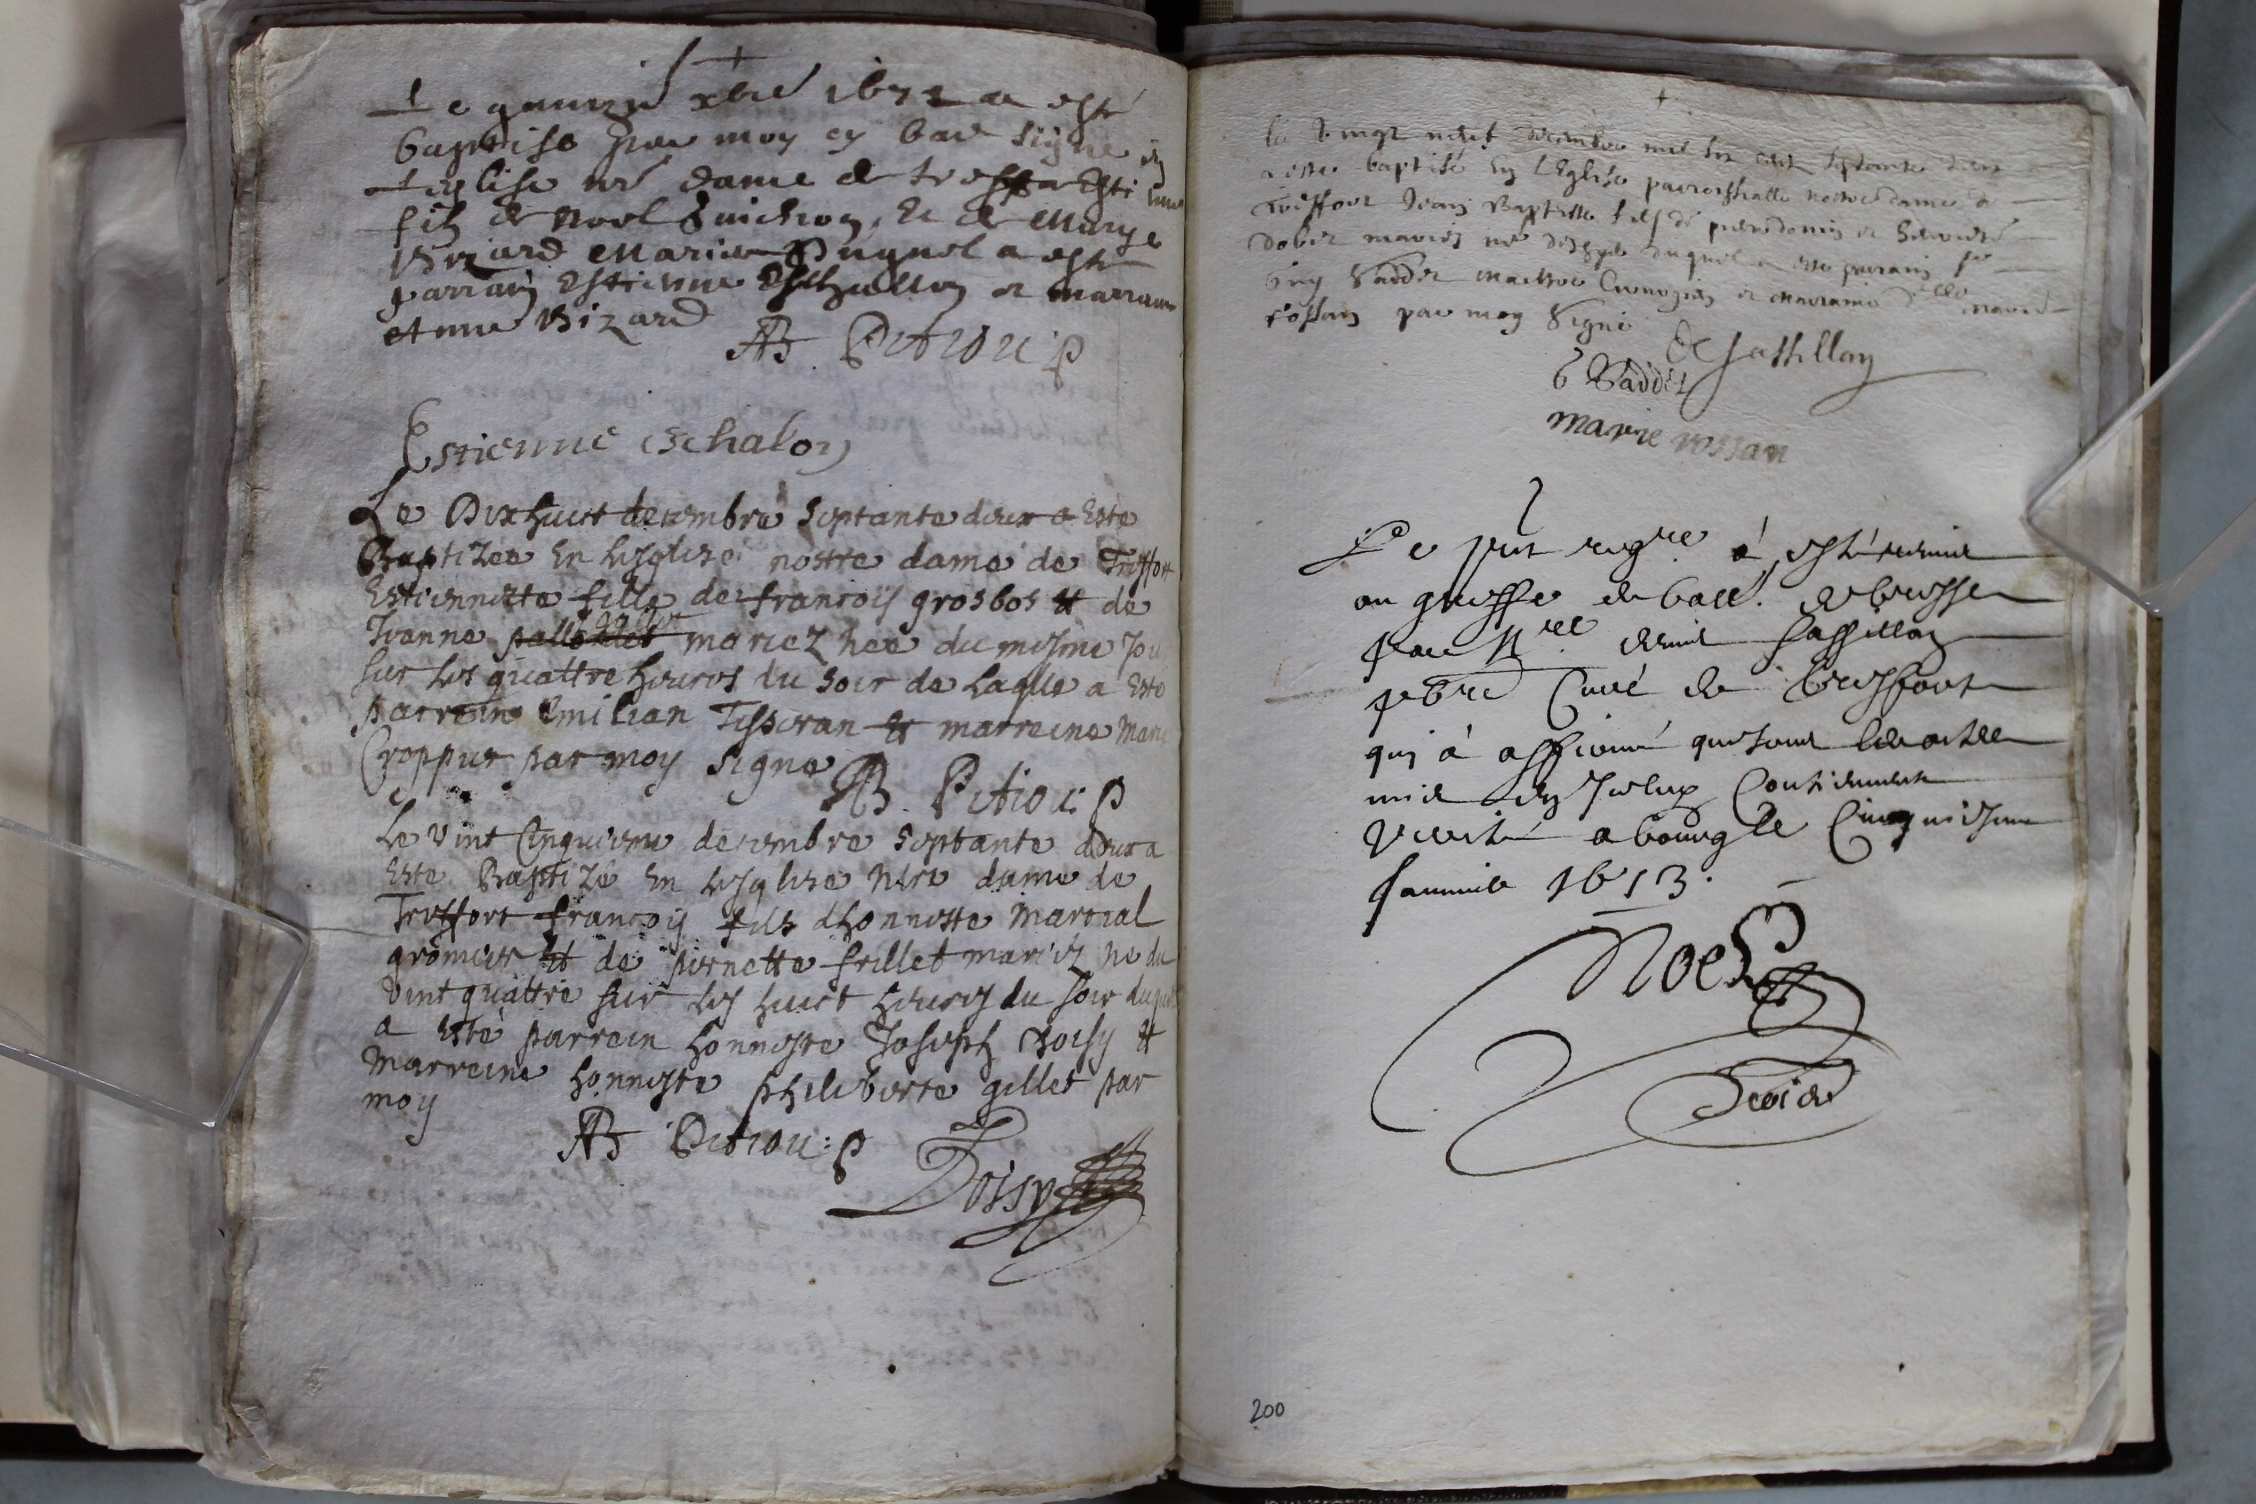 Le quinzie xbre 1672 a esté
baptisé par moy cy bas signé en
leglise nre dame de treffort Estienne
filz de Noel Guichon, et de Marye
Bizard Mariez duquel a esté
parrain Estienne Eschallon et marraine
etienne Bizard
AB Pitiou p
Estienne Eschalon
Le Dixhuict decembre septante deux a Este
Baptizee En Leglize nostre dame de Treffort
Estiennette fille de francois grosbos et de
Ivanne mariez nee du mesme Jour
sur les quattre heures du soir de laqlle a Esté
parrein Emilian Tisseran et marreine Marie
Croppet par moy signe
AB. Pitiou: p
Le vint Cinquieme decembre septante deux a
Este Baptizé En leglize nre dame de
Treffort francois fils dhonneste Martial
gromier et de pernette frillet mariez ne du
vint quattre sur les huict heures du soir duquel
a esté parrein honneste Joseph &
Marreine honneste philiberte gillet par
moy
AB Pitiou: p
le vingt neuf decembre mil six cent septante deux
a esté baptisé en l'Eglise parroissialle nostre dame de
Treffort Jean Baptiste fils de
mariez duquel a esté parrain
Vaddet et marraine marie
rossan par moy signé
De Sassillon
Vaddet
marie rossan
Le pnt regre a esté remis
au greffe du ball. de bresse
par Sassillon
pbre Curé de Treffort
qui à affirmé que tous les actes
mis en Iceluy Contiennent
verité a bourg le Cinquiesme
Janvier 1673.
Noel
200